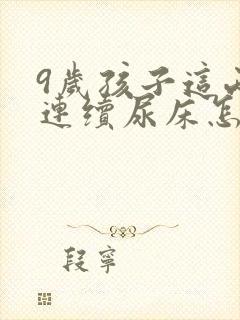 9歲孩子這
連續尿床怎
段寧